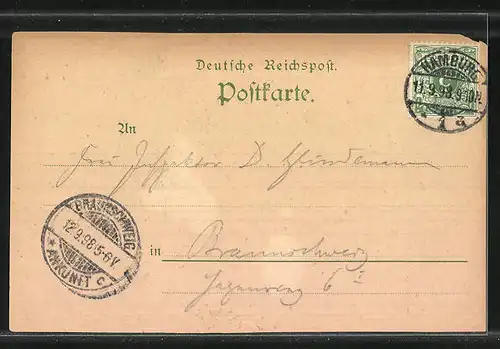 Deutsche Reichspost.
Postkarte.
HAMBURG
11.9.98.9-10N.
An
Frau Inspektor D.
BRAUNSCHWEIG
12.9.98.5-6V
* ANKUNFT C
in Braunschweig
6